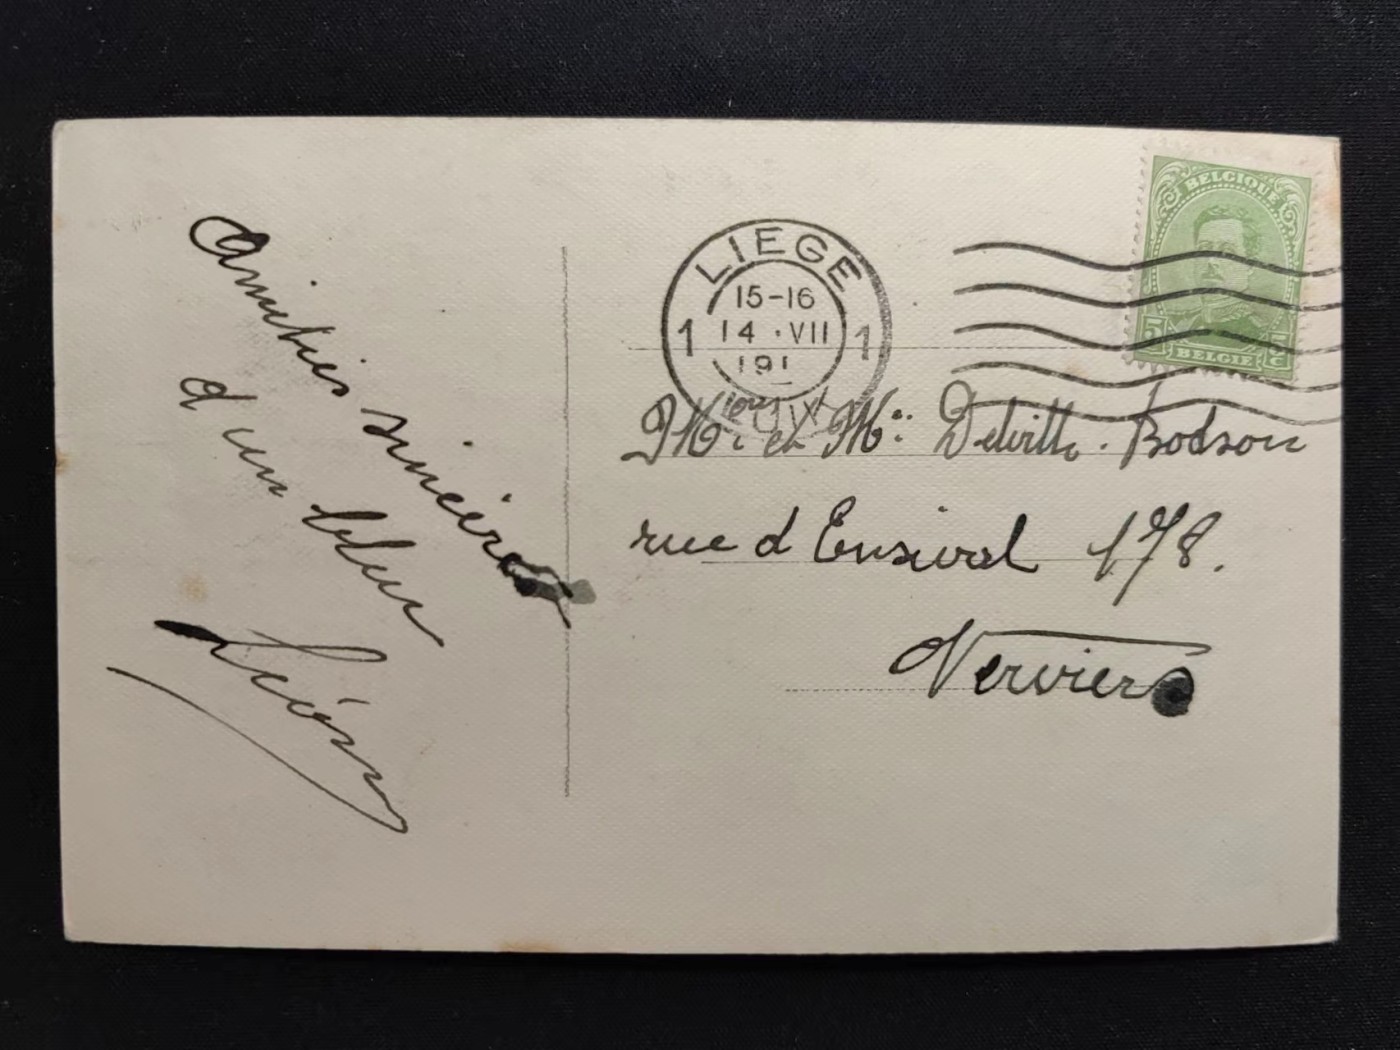 Amitiés sincères
d'un bleu
Léon
LIEGE
1 15-16 1
14 · VII
191
BELGIQUE
5 5c
BELGIE
Mr et Me Delville-Bodson
rue d Ensival 178.
Verviers